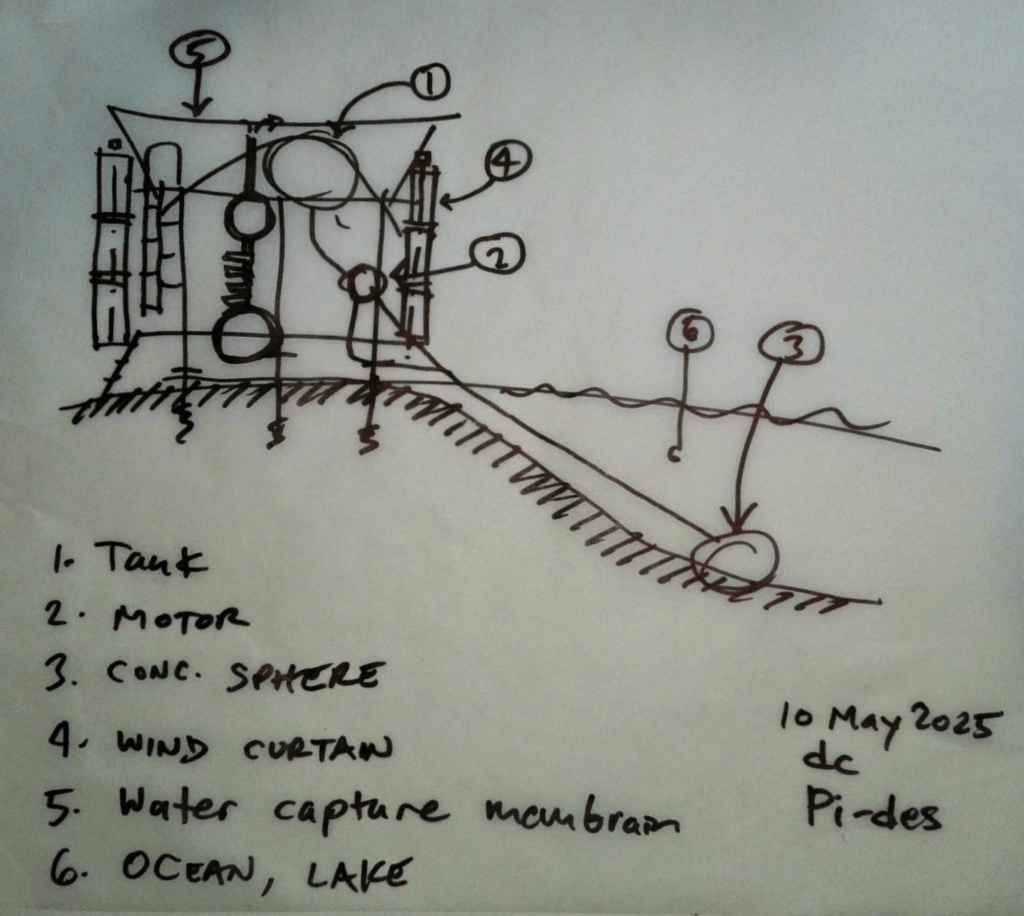 5
1
4
2
6
3
1. Tank
2. MOTOR
3. CONC. SPHERE
4. WIND CURTAIN
5. Water capture membrain
6. OCEAN, LAKE
10 May 2025
dc
Pi-des